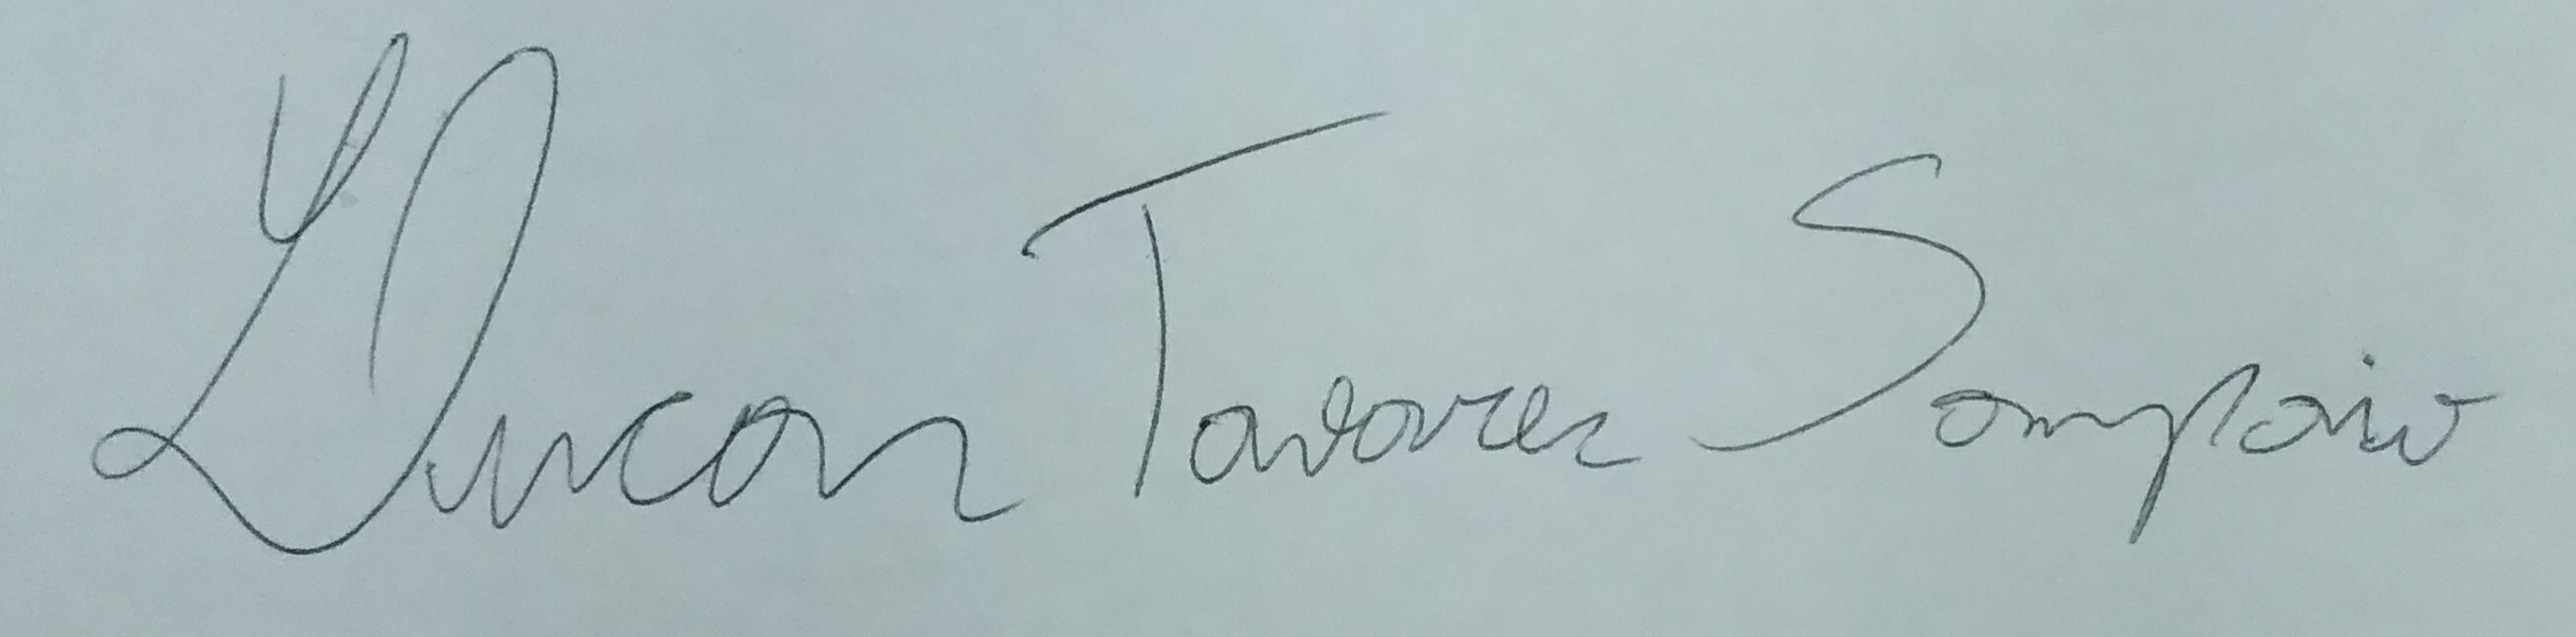 Lucas Tavares Sampaio